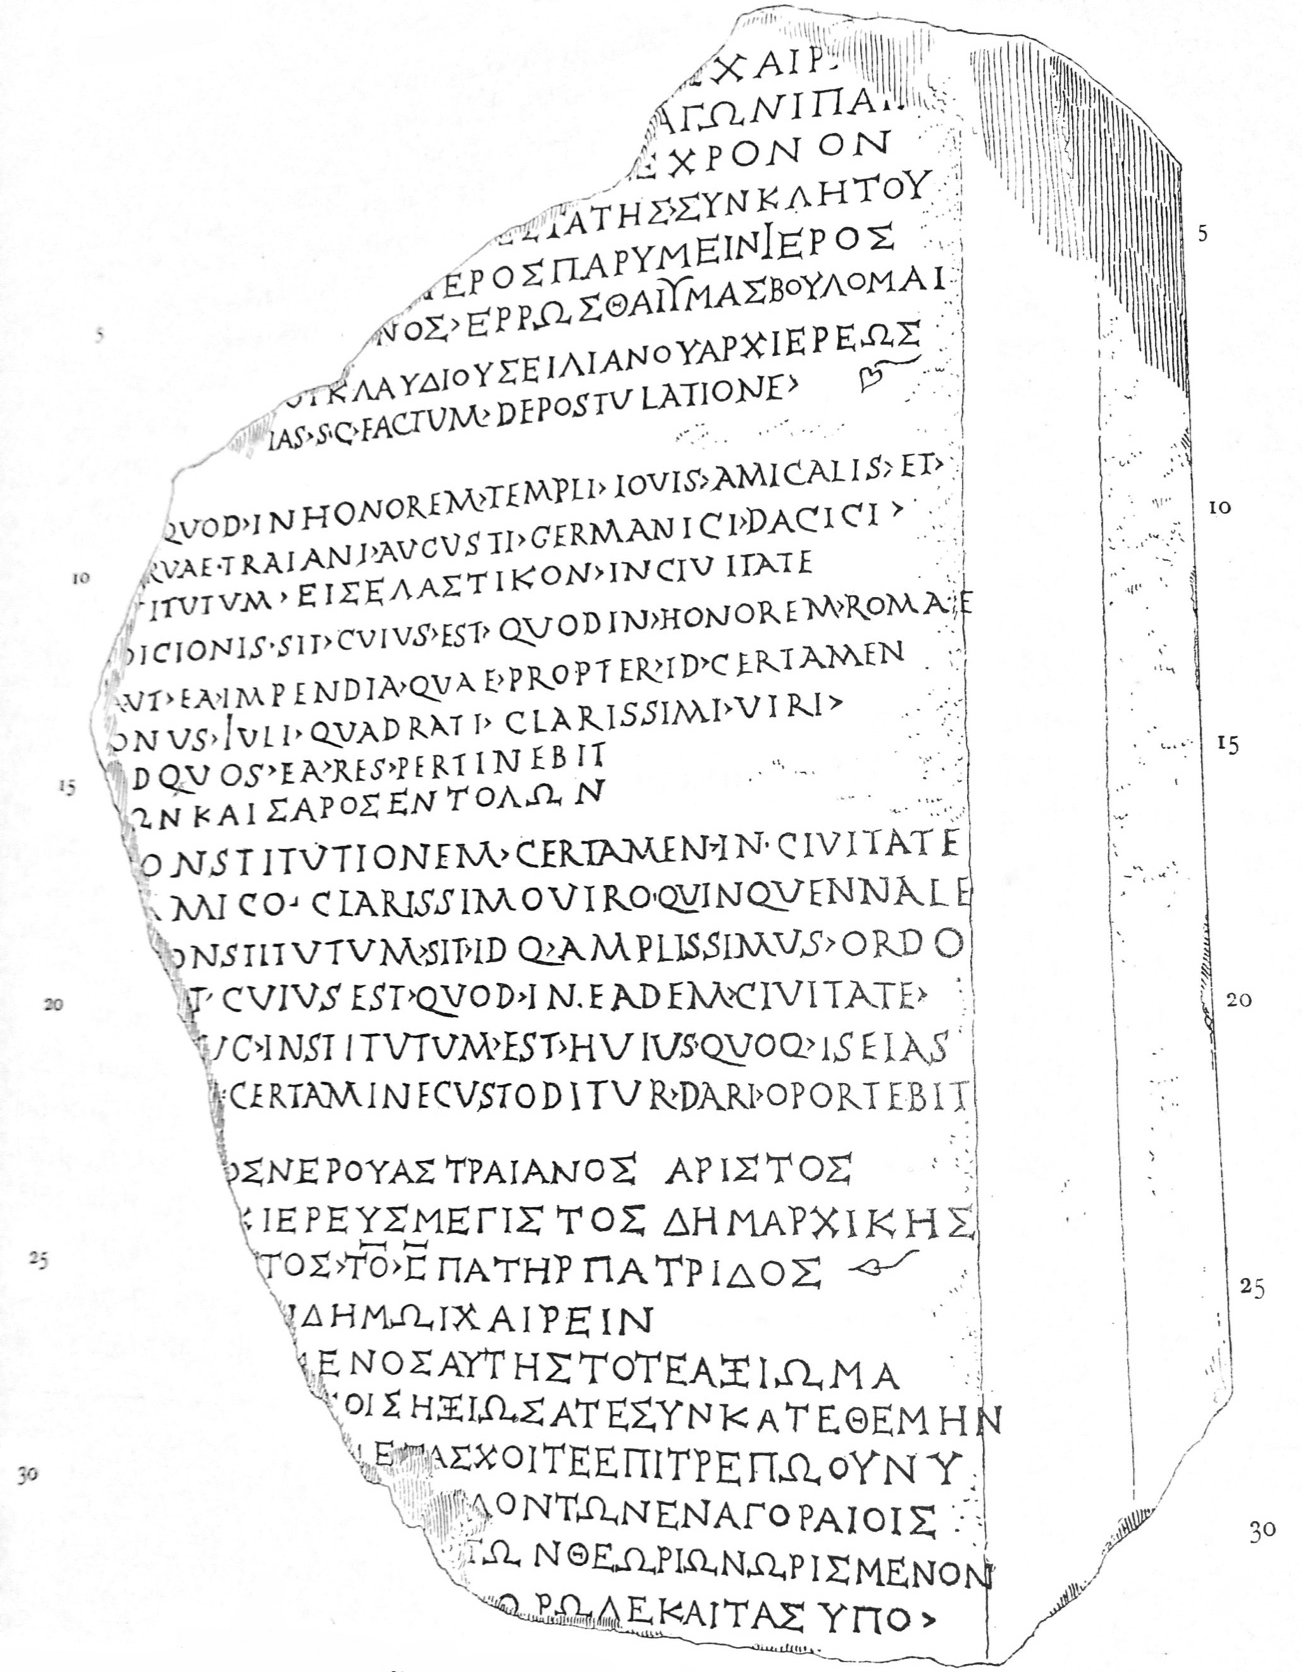 ΧΑΙΡ
ΑΓΩΝΙΠΑ
ΕΧΡΟΝΟΝ
ΕΣΤΑΤΗΣΣΥΝΚΛΗΤΟΥ
ΤΕΡΟΣΠΑΡΥΜΕΙΝΙΕΡΟΣ
ΝΟΣ›ΕΡΡΩΣΘΑΙΥΜΑΣΒΟΥΛΟΜΑΙ
ΟΥΚΛΑΥΔΙΟΥΣΕΙΛΙΑΝΟΥΑΡΧΙΕΡΕΩΣ
IAS›S·C›FACTUM›DEPOSTULATIONE›
QUOD›INHONOREM›TEMPLI›IOVIS›AMICALIS›ET›
RVAE·TRAIANI›AVCVSTI›GERMANICI›DACICI›
TITUTVM›ΕΙΣΕΛΑΣΤΙΚΟΝ›INCIVITATE
DICIONIS·SIT›CVIVS›EST›QVODIN›HONOREM›ROMAE
AVT›EA›IMPENDIA›QVAE›PROPTER›ID›CERTAMEN
ONVS›IVLI›QVADRATI›CLARISSIMI›VIRI›
DQVOS›EA›RES›PERTINEBIT
ΩΝΚΑΙΣΑΡΟΣΕΝΤΟΛΩΝ
ONSTITVTIONEM›CERTAMEN›IN·CIVITATE
AMICO·CLARISSIMOVIRO·QVINQVENNALE
ONSTITVTVM›SIT›IDQ›AMPLISSIMVS›ORDO
T·CVIVSEST›QVOD›IN.EADEM›CIVITATE›
VC›INSTITVTVM›EST›HVIVS·QVOQ›ISEIAS
CERTAMINECVSTODITVR›DARI›OPORTEBIT
ΟΣΝΕΡΟΥΑΣΤΡΑΙΑΝΟΣ ΑΡΙΣΤΟΣ
ΧΙΕΡΕΥΣΜΕΓΙΣΤΟΣ ΔΗΜΑΡΧΙΚΗΣ
ΤΟΣ›ΤΟ›ΕΠΑΤΗΡΠΑΤΡΙΔΟΣ
ΙΔΗΜΩΙΧΑΙΡΕΙΝ
ΕΝΟΣΑΥΤΗΣΤΟΤΕΑΞΙΩΜΑ
ΟΙΣΗΞΙΩΣΑΤΕΣΥΝΚΑΤΕΘΕΜΗΝ
ΕΠΑΣΧΟΙΤΕΕΠΙΤΡΕΠΩΟΥΝΥ
ΛΟΝΤΩΝΕΝΑΓΟΡΑΙΟΙΣ
ΤΩΝΘΕΩΡΙΩΝΩΡΙΣΜΕΝΟΝ
ΟΡΩΔΕΚΑΙΤΑΣΥΠΟ›
5
10
15
20
25
30
5
10
15
20
25
30